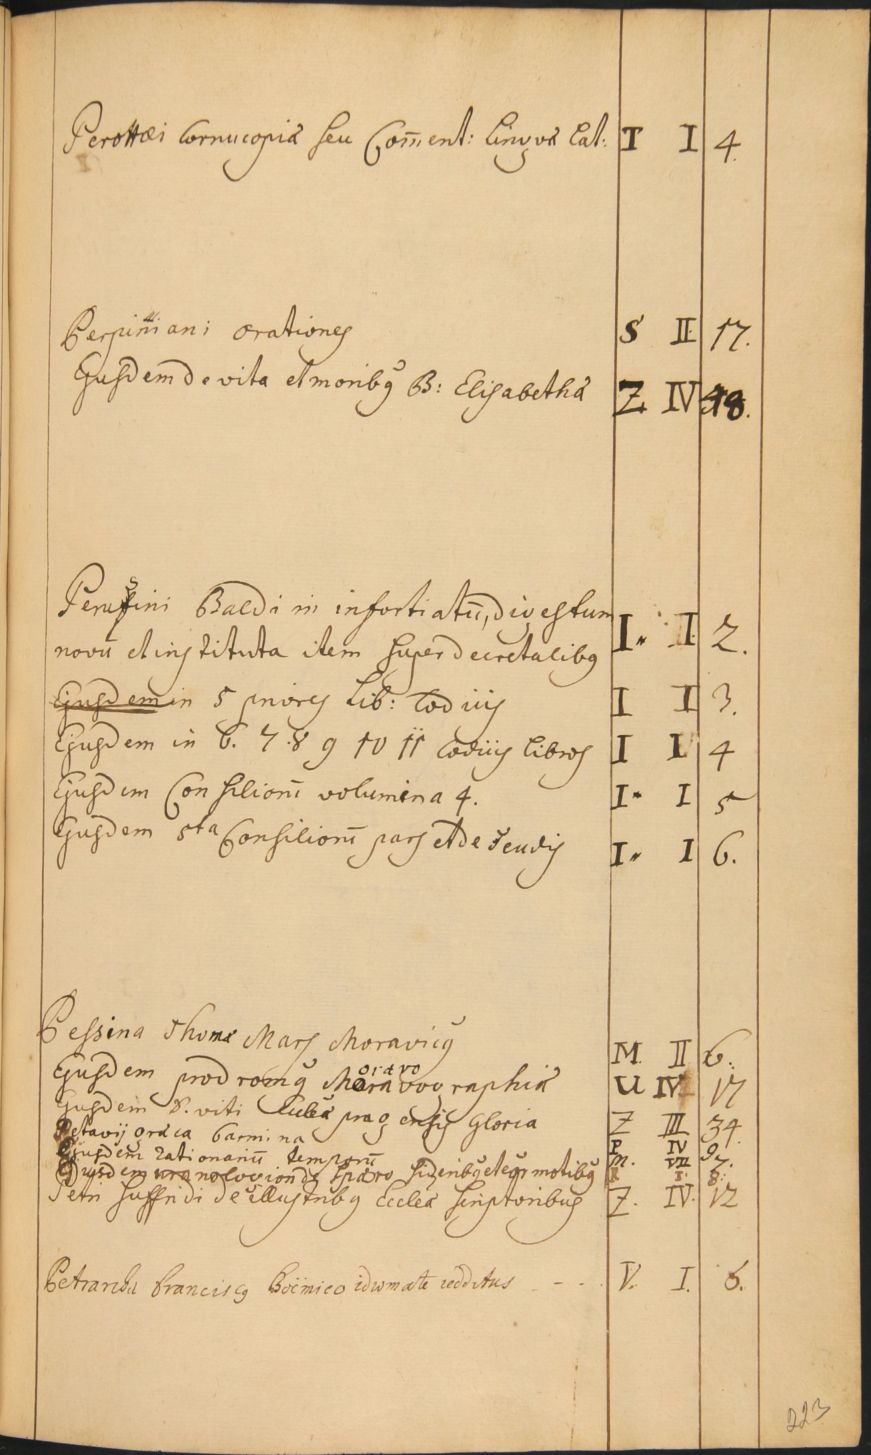 Perottæi Cornucopiæ seu Com̃ent: Linguæ Lat: I I 4.
Perpiniani orationes S II 17.
Ejusdem de vita et moribus B: Elisabethæ Z IV 18.
Perusini Baldi in infortiatũ, digestum
novũ et instituta item super decretalibus I. I 2.
Ejusdem in 5 priores Lib: Codicis I I 3.
Ejusdem in 6. 7. 8 9 10 11 Codicis libros I I 4
Ejusdem Consiliorũ volumina 4. I. I 5
Ejusdem 5ta Consiliorũ pars et de Feudis I. I 6.
Pessina Thomæ Mars Moravicus M. II 6.
Ejusdem prodromus Moravographiæ U IV 17
Ejusdem S. viti Eccleæ pragensis Gloria Z III 34.
Petavij Græca Carmina P IV 9.
Ejusdem rationariũ temporũ M. VII 7.
Ejusdem 8.
Petri Suffridi de illustribus Eccleæ scriptoribus Z. IV. 12
Petrarcha Franciscus Boëmico idiomate redditus - - . V. I. 6.
223